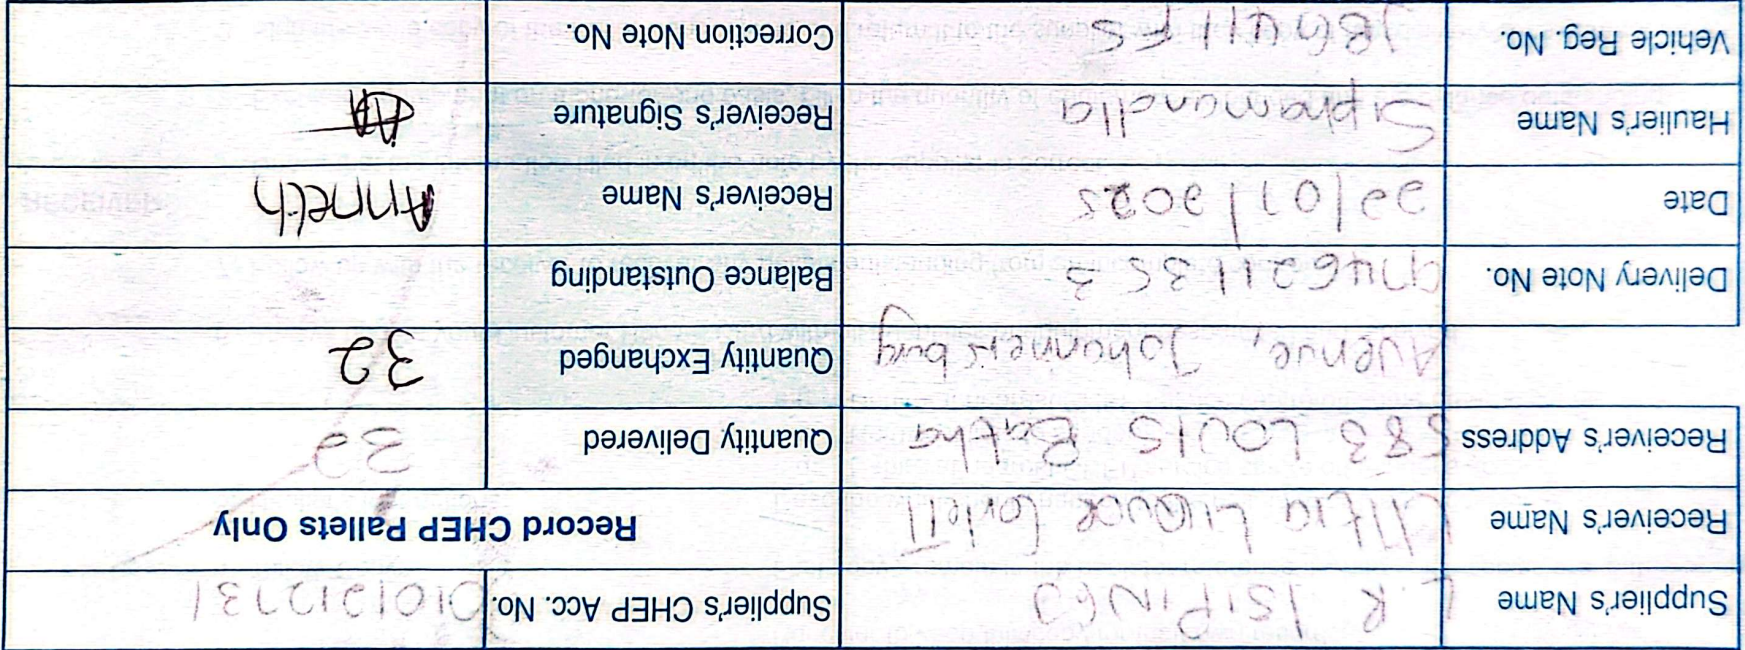 Supplier's Name L.R ISIPINGO Supplier's CHEP Acc. No. 0101212731
Receiver's Name Ultra Liquor Corlett Record CHEP Pallets Only
Receiver's Address 583 LOUIS Botha Quantity Delivered 32
Avenue, Johannesburg Quantity Exchanged 32
Delivery Note No. Balance Outstanding
Date 22/07/2025 Receiver's Name Anneth
Haulier's Name Siphamandla Receiver's Signature
Vehicle Reg. No. Correction Note No.